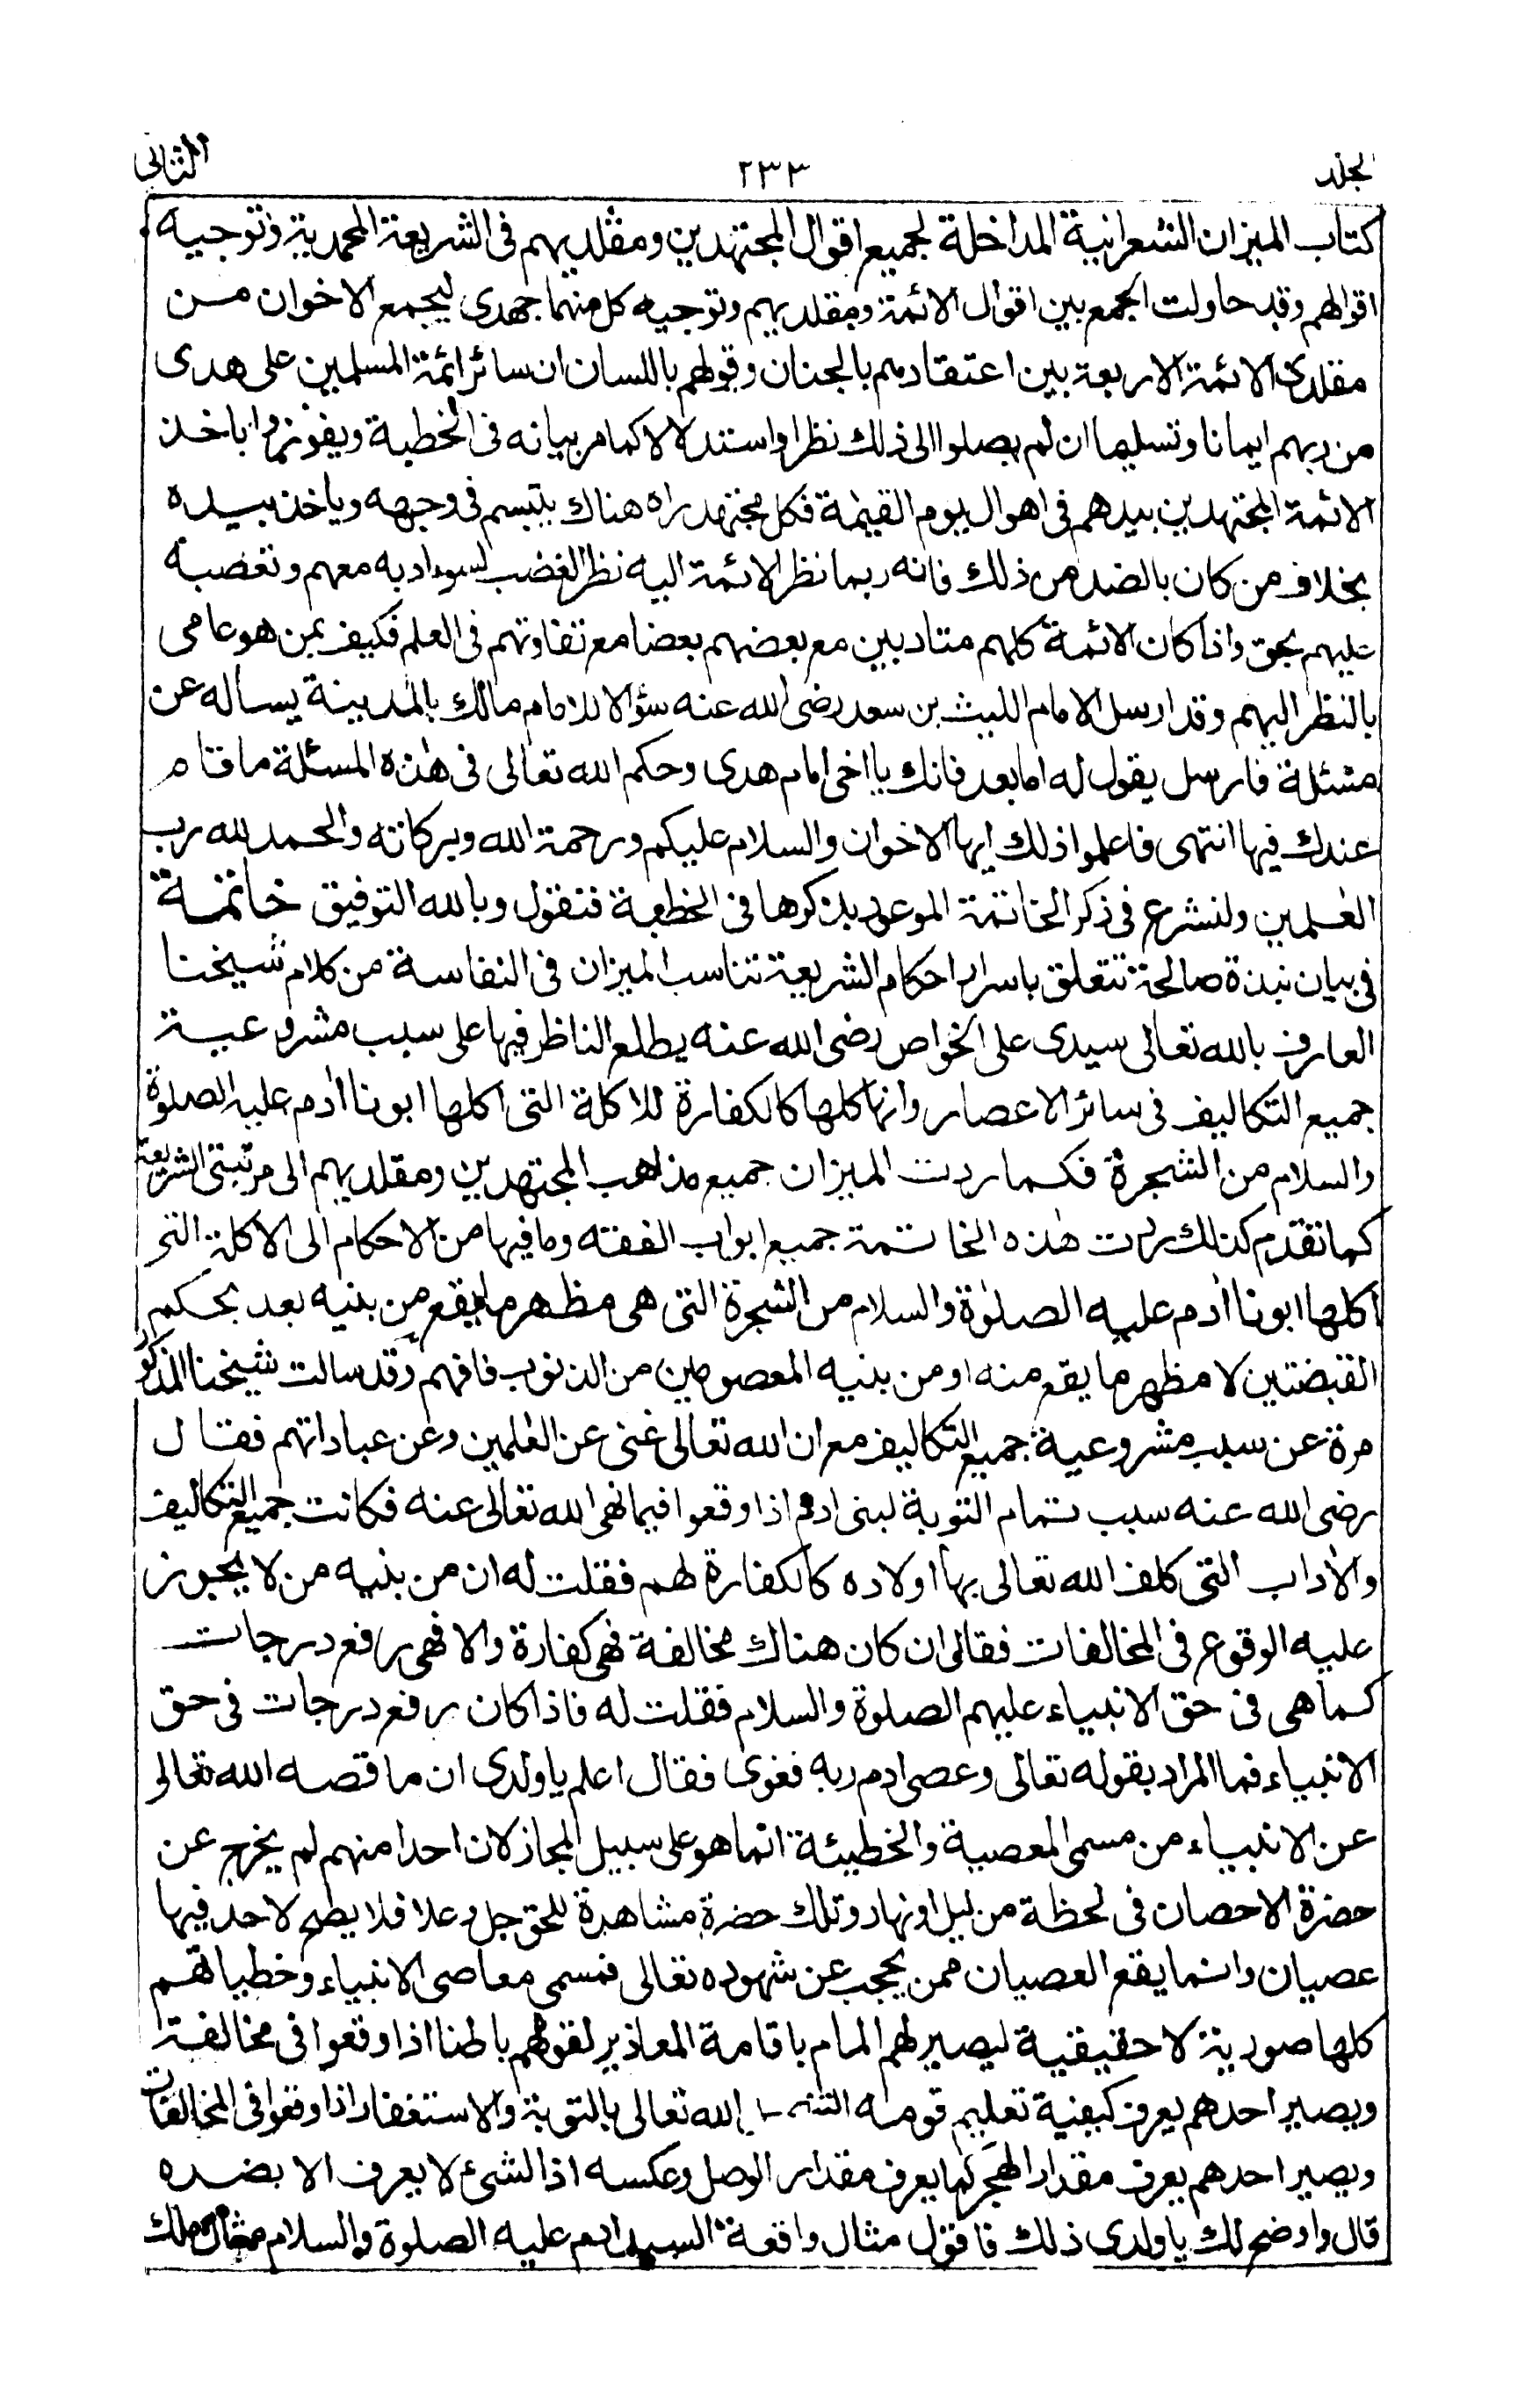 الجلد ٢٣٣ الثانى
كتاب الميزان الشعرانية المدخلة لجميع اقوال المجتهدين ومقلديهم فى الشريعة المحمدية وتوجيه
اقوالهم وقد حاولت الجمع بين اقوال الائمة ومقلديهم وتوجيه كل منهما جهدى ليجمع الاخوان من
مقلدى الائمة الاربعة بين اعتقادهم بالجنان وقولهم باللسان ان سائر ائمة المسلمين على هدى
من ربهم ايمانا وتسليما ان لم يصلوا الى ذلك نظرا واستدلالا كما مر بيانه فى الخطبة ويفوزوا باخذ
الائمة المجتهدين بيدهم فى اهوال يوم القيٰمة فكل مجتهد راه هناك يتبسم فى وجهه وياخذ بيده
بخلاف من كان بالضد من ذلك فانه ربما نظر الائمة اليه نظر الغضب لسوء ادبه معهم وتعصبه
عليهم بحق واذا كان الائمة كلهم متادبين مع بعضهم بعضا مع تفاوتهم فى العلم فكيف بمن هو عامى
بالنظر اليهم وقد ارسل الامام الليث بن سعد رضى الله عنه سؤالا للامام مالك بالمدينة يساله عن
مسئلة فارسل يقول له اما بعد فانك يا اخى امام هدى وحكم الله تعالى فى هٰذه المسئلة ما قام
عندك فيها انتهى فاعلموا ذلك ايها الاخوان والسلام عليكم ورحمة الله وبركاته والحمد لله رب
العٰلمين ولنشرع فى ذكر الخاتمة الموعود بذكرها فى الخطبة فنقول وبالله التوفيق خاتمة
فى بيان نبذة صالحة تتعلق باسرار احكام الشريعة تناسب الميزان فى النفاسة من كلام شيخنا
العارف بالله تعالى سيدى على الخواص رضى الله عنه يطلع الناظر فيها على سبب مشروعية
جميع التكاليف فى سائر الاعصار وانها كلها كالكفارة للاكلة التى اكلها ابونا اٰدم عليه الصلوة
والسلام من الشجرة فكما ردت الميزان جميع مذاهب المجتهدين ومقلديهم الى مرتبتى الشريعة
كما تقدم كذلك ردت هٰذه الخاتمة جميع ابواب الفقه وما فيها من الاحكام الى الاكلة التى
اكلها ابونا اٰدم عليه الصلوٰة والسلام من الشجرة التى هى مظهر ما يقع من بنيه بعد بحكم
القبضتين لا مظهر ما يقع منه او من بنيه المعصومين من الذنوب فافهم وقد سالت شيخنا المذكور
مرة عن سبب مشروعية جميع التكاليف مع ان الله تعالى غنى عن العٰلمين وعن عباداتهم فقال
رضى الله عنه سبب تمام التوبة لبنى ادم اذا وقعوا فيما نهى الله تعالى عنه فكانت جميع التكاليف
والاٰداب التى كلف الله تعالى بها اولاده كالكفارة لهم فقلت له ان من بنيه من لا يجوز
عليه الوقوع فى المخالفات فقال ان كان هناك مخالفة فهى كفارة والا فهى رفع درجات
كما هى فى حق الانبياء عليهم الصلوة والسلام فقلت له فاذا كان رفع درجات فى حق
الانبياء فما المراد بقوله تعالى وعصى ادم ربه فغوى فقال اعلم يا ولدى ان ما قصه الله تعالى
عن الانبياء من مسمى المعصية والخطيئة انما هو على سبيل المجاز لان احدا منهم لم يخرج عن
حضرة الاحصان فى لحظة من ليل او نهار وتلك حضرة مشاهدة للحق جل وعلا فلا يصح لاحد فيها
عصيان وانما يقع العصيان ممن يحجب عن شهوده تعالى فمسمى معاصى الانبياء وخطياتهم
كلها صورية لا حقيقية ليصير لهم المام باقامة المعاذير لقومهم باطنا اذا وقعوا فى مخالفة
ويصير احدهم يعرف كيفية تعليم قومه الله تعالى بالتوبة والاستغفار اذا وقعوا فى المخالفات
ويصير احدهم يعرف مقدار الهجر كما يعرف مقدار الوصل وعكسه اذ الشئ لا يعرف الا بضده
قال واوضح لك يا ولدى ذلك فاقول مثال واقعة السيد ادم عليه الصلوة والسلام مثال ملك